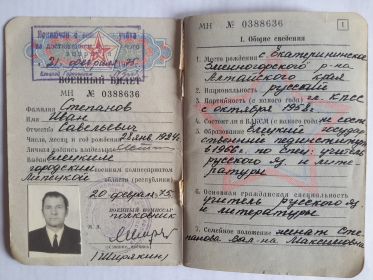 21 февраля 75г.
ВОЕННЫЙ БИЛЕТ
МН № 0388636
Фамилия Степанов
Имя Иван
Отчество Савельевич
Число, месяц и год рождения 28 янв. 1924г.
Личная подпись владельца
Выдан Елецким
городским военным комиссариатом
Липецкой области
20 февраля 75г.
ВОЕННЫЙ КОМИССАР
полковник
(Ширякин)
МН № 0388636
1
I. Общие сведения
1. Место рождения с. Екатерининское
Змеиногорского р-на
Алтайского края
Национальность русский
2. Партийность (с какого года) чл. КПСС
с октября 1958г.
4. Состоит ли в ВЛКСМ (с какого года) не сост.
5. Образование Елецкий государ
ственный пединститут
в 1966г. по спец. учитель
русского яз. и лите-
ратуры
6. Основная гражданская специальность
учитель русского яз.
и литературы
7. Семейное положение женат Сте
панова Вал-на Максимовна